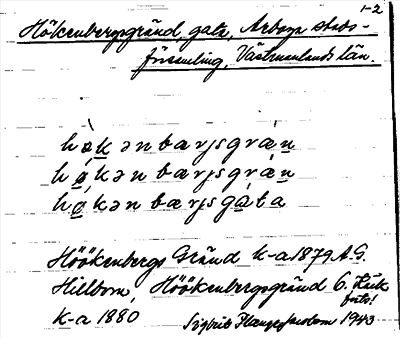 1-2
Hökenbergsgränd, gata, Arboga stads-
församling, Västmanlands län.
hø̀kənbærjsgrän
hø̀kənbærjsgrän
hø̀kənbærjsgata
Höökenbergs Gränd k-a 1879 A.G.
Hillbom, Höökenbergsgränd 6.
k-a 1880 Sigfrid 1943